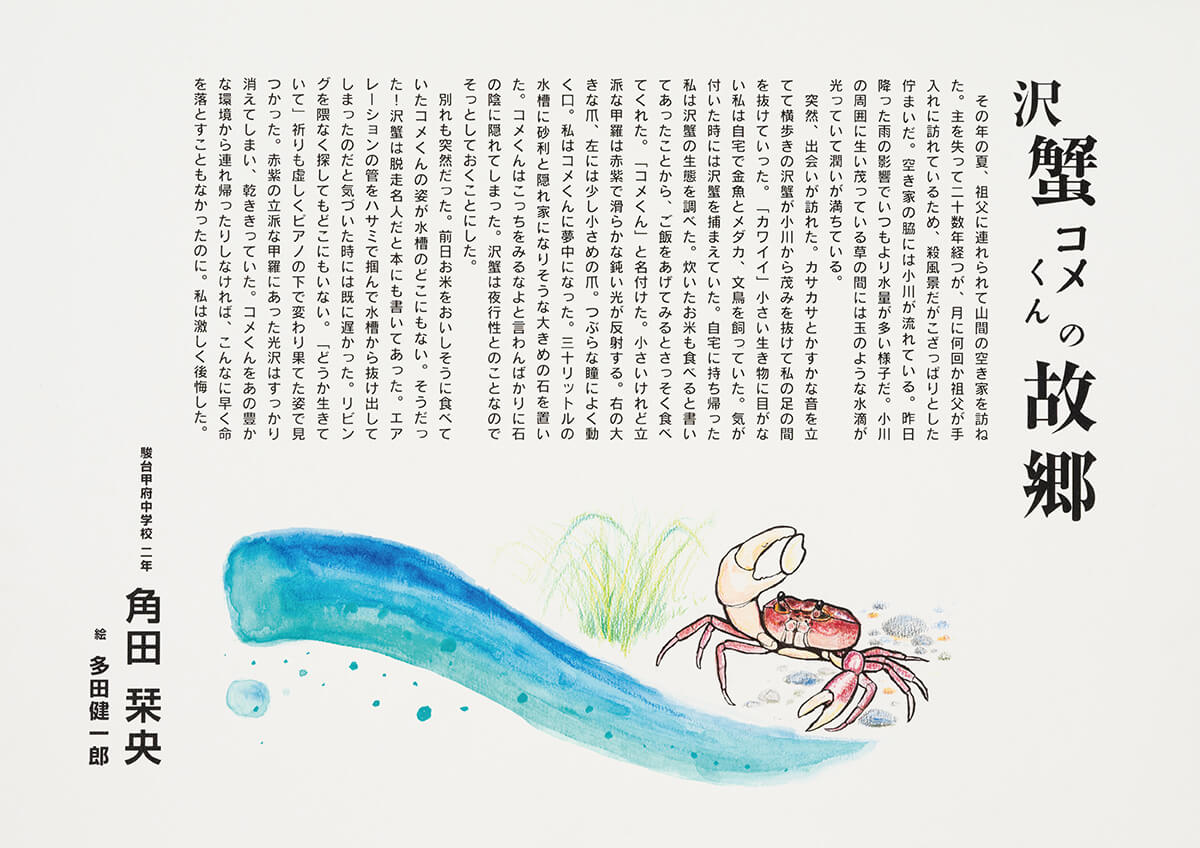 沢蟹コメくんの故郷
　その年の夏、祖父に連れられて山間の空き家を訪ね
た。主を失って二十数年経つが、月に何回か祖父が手
入れに訪れているため、殺風景だがこざっぱりとした
佇まいだ。空き家の脇には小川が流れている。昨日
降った雨の影響でいつもより水量が多い様子だ。小川
の周囲に生い茂っている草の間には玉のような水滴が
光っていて潤いが満ちている。
　突然、出会いが訪れた。カサカサとかすかな音を立
てて横歩きの沢蟹が小川から茂みを抜けて私の足の間
を抜けていった。「カワイイ」小さい生き物に目がな
い私は自宅で金魚とメダカ、文鳥を飼っていた。気が
付いた時には沢蟹を捕まえていた。自宅に持ち帰った
私は沢蟹の生態を調べた。炊いたお米も食べると書い
てあったことから、ご飯をあげてみるとさっそく食べ
てくれた。「コメくん」と名付けた。小さいけれど立
派な甲羅は赤紫で滑らかな鈍い光が反射する。右の大
きな爪、左には少し小さめの爪。つぶらな瞳によく動
く口。私はコメくんに夢中になった。三十リットルの
水槽に砂利と隠れ家になりそうな大きめの石を置い
た。コメくんはこっちをみるなよと言わんばかりに石
の陰に隠れてしまった。沢蟹は夜行性とのことなので
そっとしておくことにした。
　別れも突然だった。前日お米をおいしそうに食べて
いたコメくんの姿が水槽のどこにもない。そうだっ
た！沢蟹は脱走名人だと本にも書いてあった。エア
レーションの管をハサミで掴んで水槽から抜け出して
しまったのだと気づいた時には既に遅かった。リビン
グを隈なく探してもどこにもいない。「どうか生きて
いて」祈りも虚しくピアノの下で変わり果てた姿で見
つかった。赤紫の立派な甲羅にあった光沢はすっかり
消えてしまい、乾ききっていた。コメくんをあの豊か
な環境から連れ帰ったりしなければ、こんなに早く命
を落とすこともなかったのに。私は激しく後悔した。
駿台甲府中学校 二年
角田 栞央
絵 多田健一郎